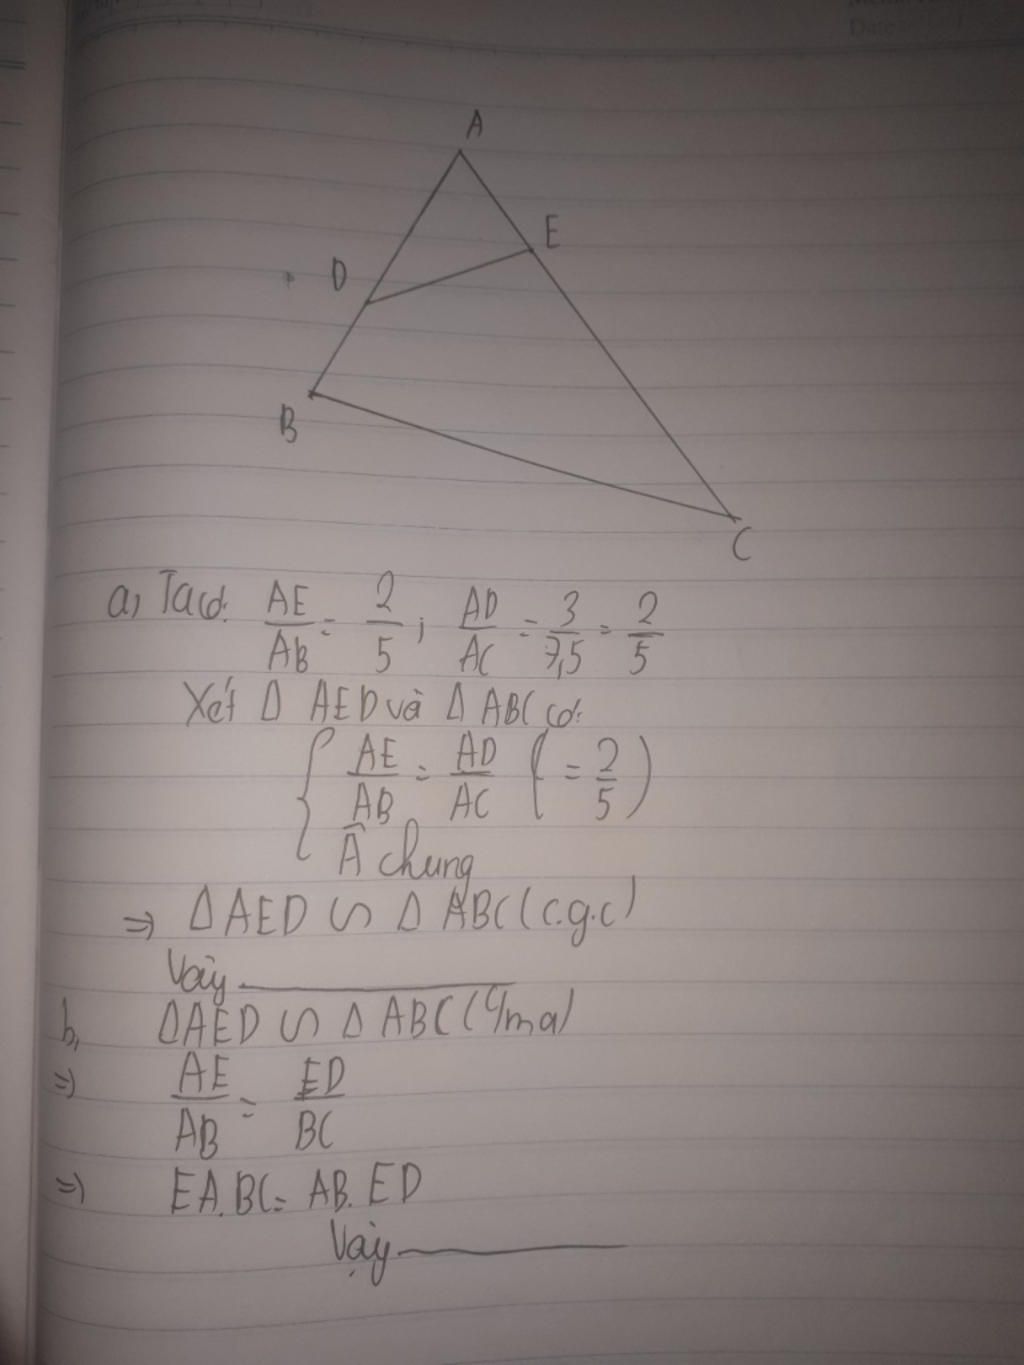 Date
A
E
D
B
C
a, Ta có: AE/AB = 2/5 ; AD/AC = 3/7,5 = 2/5
Xét Δ AED và Δ ABC có:
{ AE/AB = AD/AC ( = 2/5 )
Â chung
=> Δ AED ∽ Δ ABC (c.g.c)
Vậy
b, Δ AED ∽ Δ ABC (c/ma)
=> AE/AB = ED/BC
=> EA.BC = AB.ED
Vậy